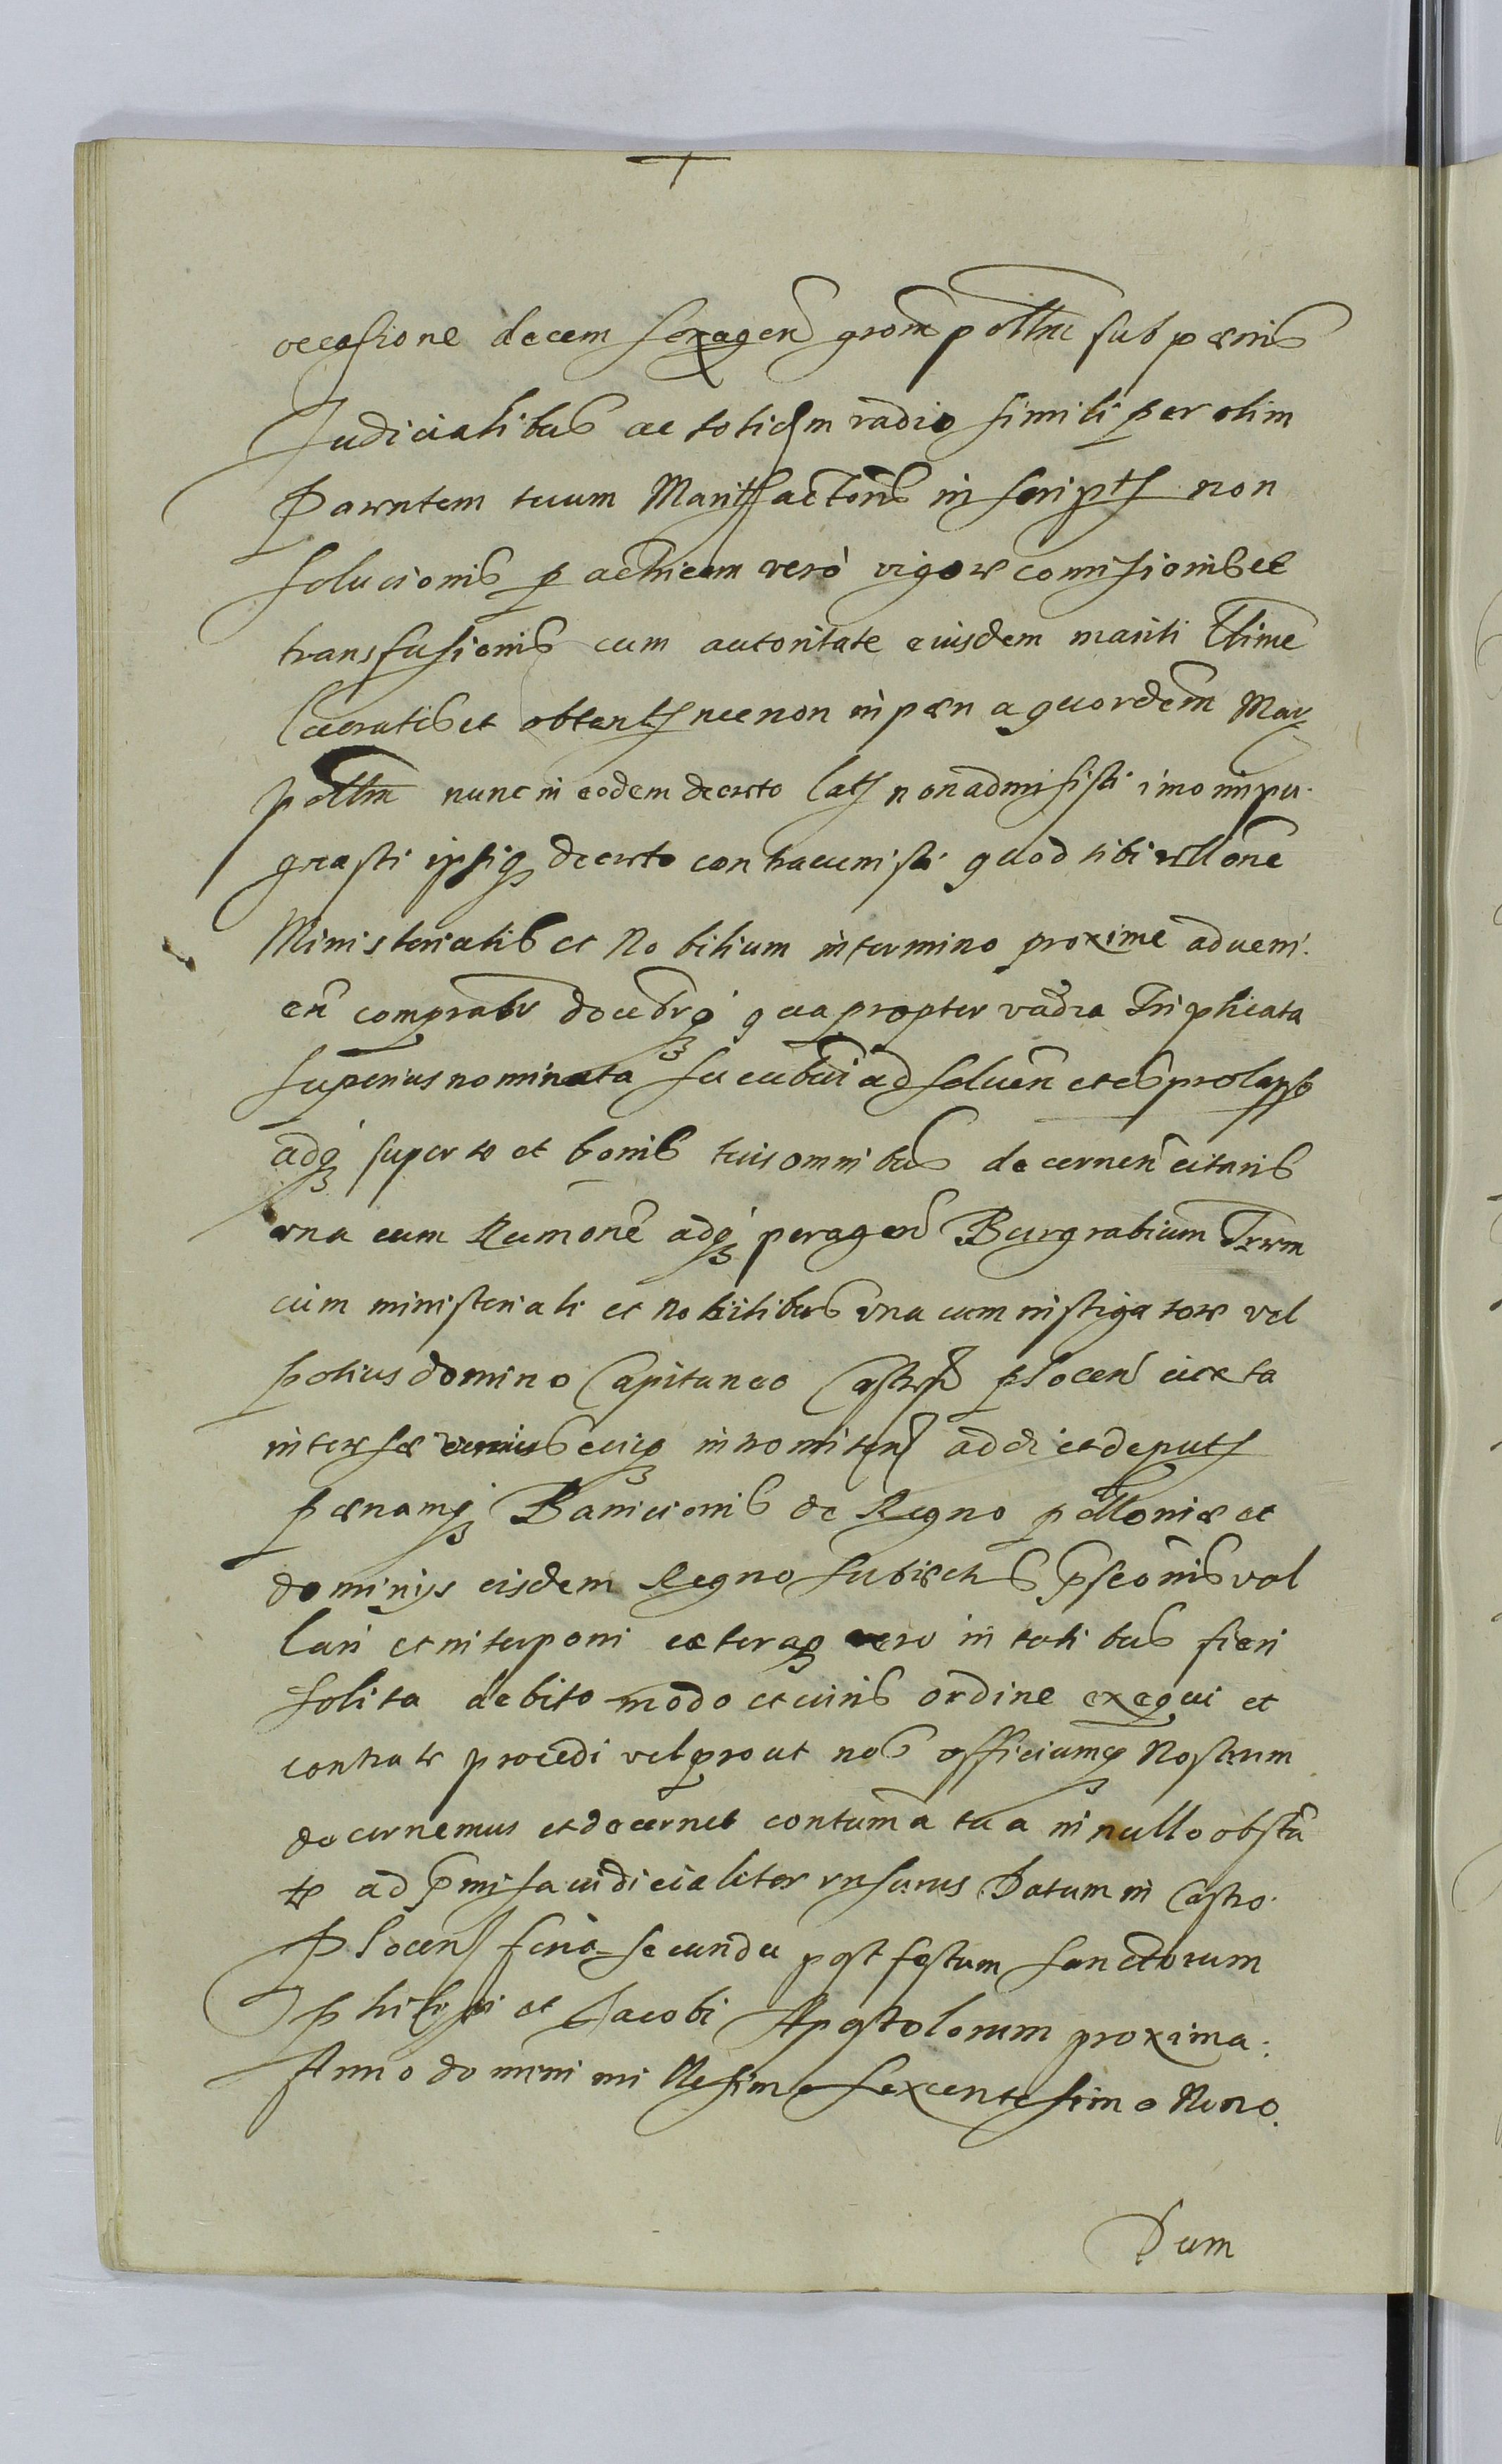 occasione decem sexagen grom pollm sub pænis
Judicialibus ac totidem vadio simili per olim
Parentem tuum Mariti actoris inscript non
solucionis p actricem vero vigore comissionis et
transfusionis cum autoritate eiusdem mariti
et obtent nec non in pæn a quordem Mar
pollm nunc in eodem decreto lat non admisisti imo impu
gnasti ipsiq decreto contravenisti quod tibi rellone
Ministerialis et Nobilium in termino proxime adveni
en comprabr docebrq quapropter vadia Triplicata
superius nominata ad solven et es prolapsus
adq super te et bonis tuis omnibus decernen citaris
una cum Rumone adq peragen Burgrabium Trrm
cum ministeriali et nobilibus una cum instigatore vel
potius domino Capitaneo Castrn plocen iuxta
interesse inromiten addi et deput
pænamq Banicionis de Regno polloniæ et
dominijs eisdem Regno subiectis pseonis vel
lari et interponi cæteraq vero in talibus fieri
solita debito modo et iuris ordine exequi et
contra te procedi vel prout nos officiumq Nostrum
decernemus et decernet contuma tua in nullo obsta
te ad pmissa iudicialiter rnsurus Datum in Castro
Plocen feria secunda post festum sanctorum
Philippi et Jacobi Apostolorum proxima:
Anno domini millesimo sexcentesimo Nono.
Dum